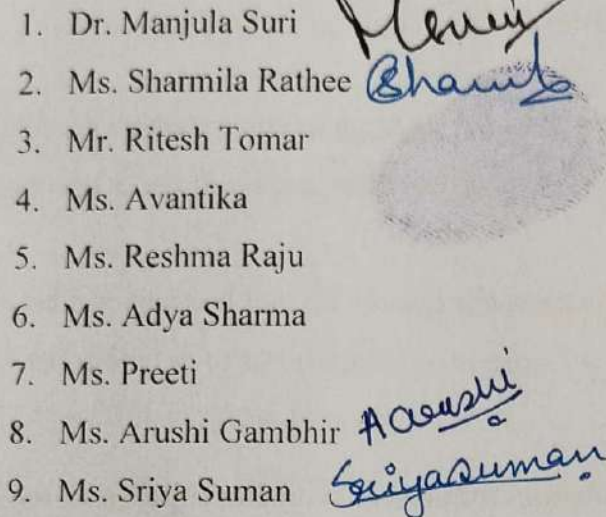 1. Dr. Manjula Suri
2. Ms. Sharmila Rathee Sharmila
3. Mr. Ritesh Tomar
4. Ms. Avantika
5. Ms. Reshma Raju
6. Ms. Adya Sharma
7. Ms. Preeti
8. Ms. Arushi Gambhir Aarushi
9. Ms. Sriya Suman Sriyasuman